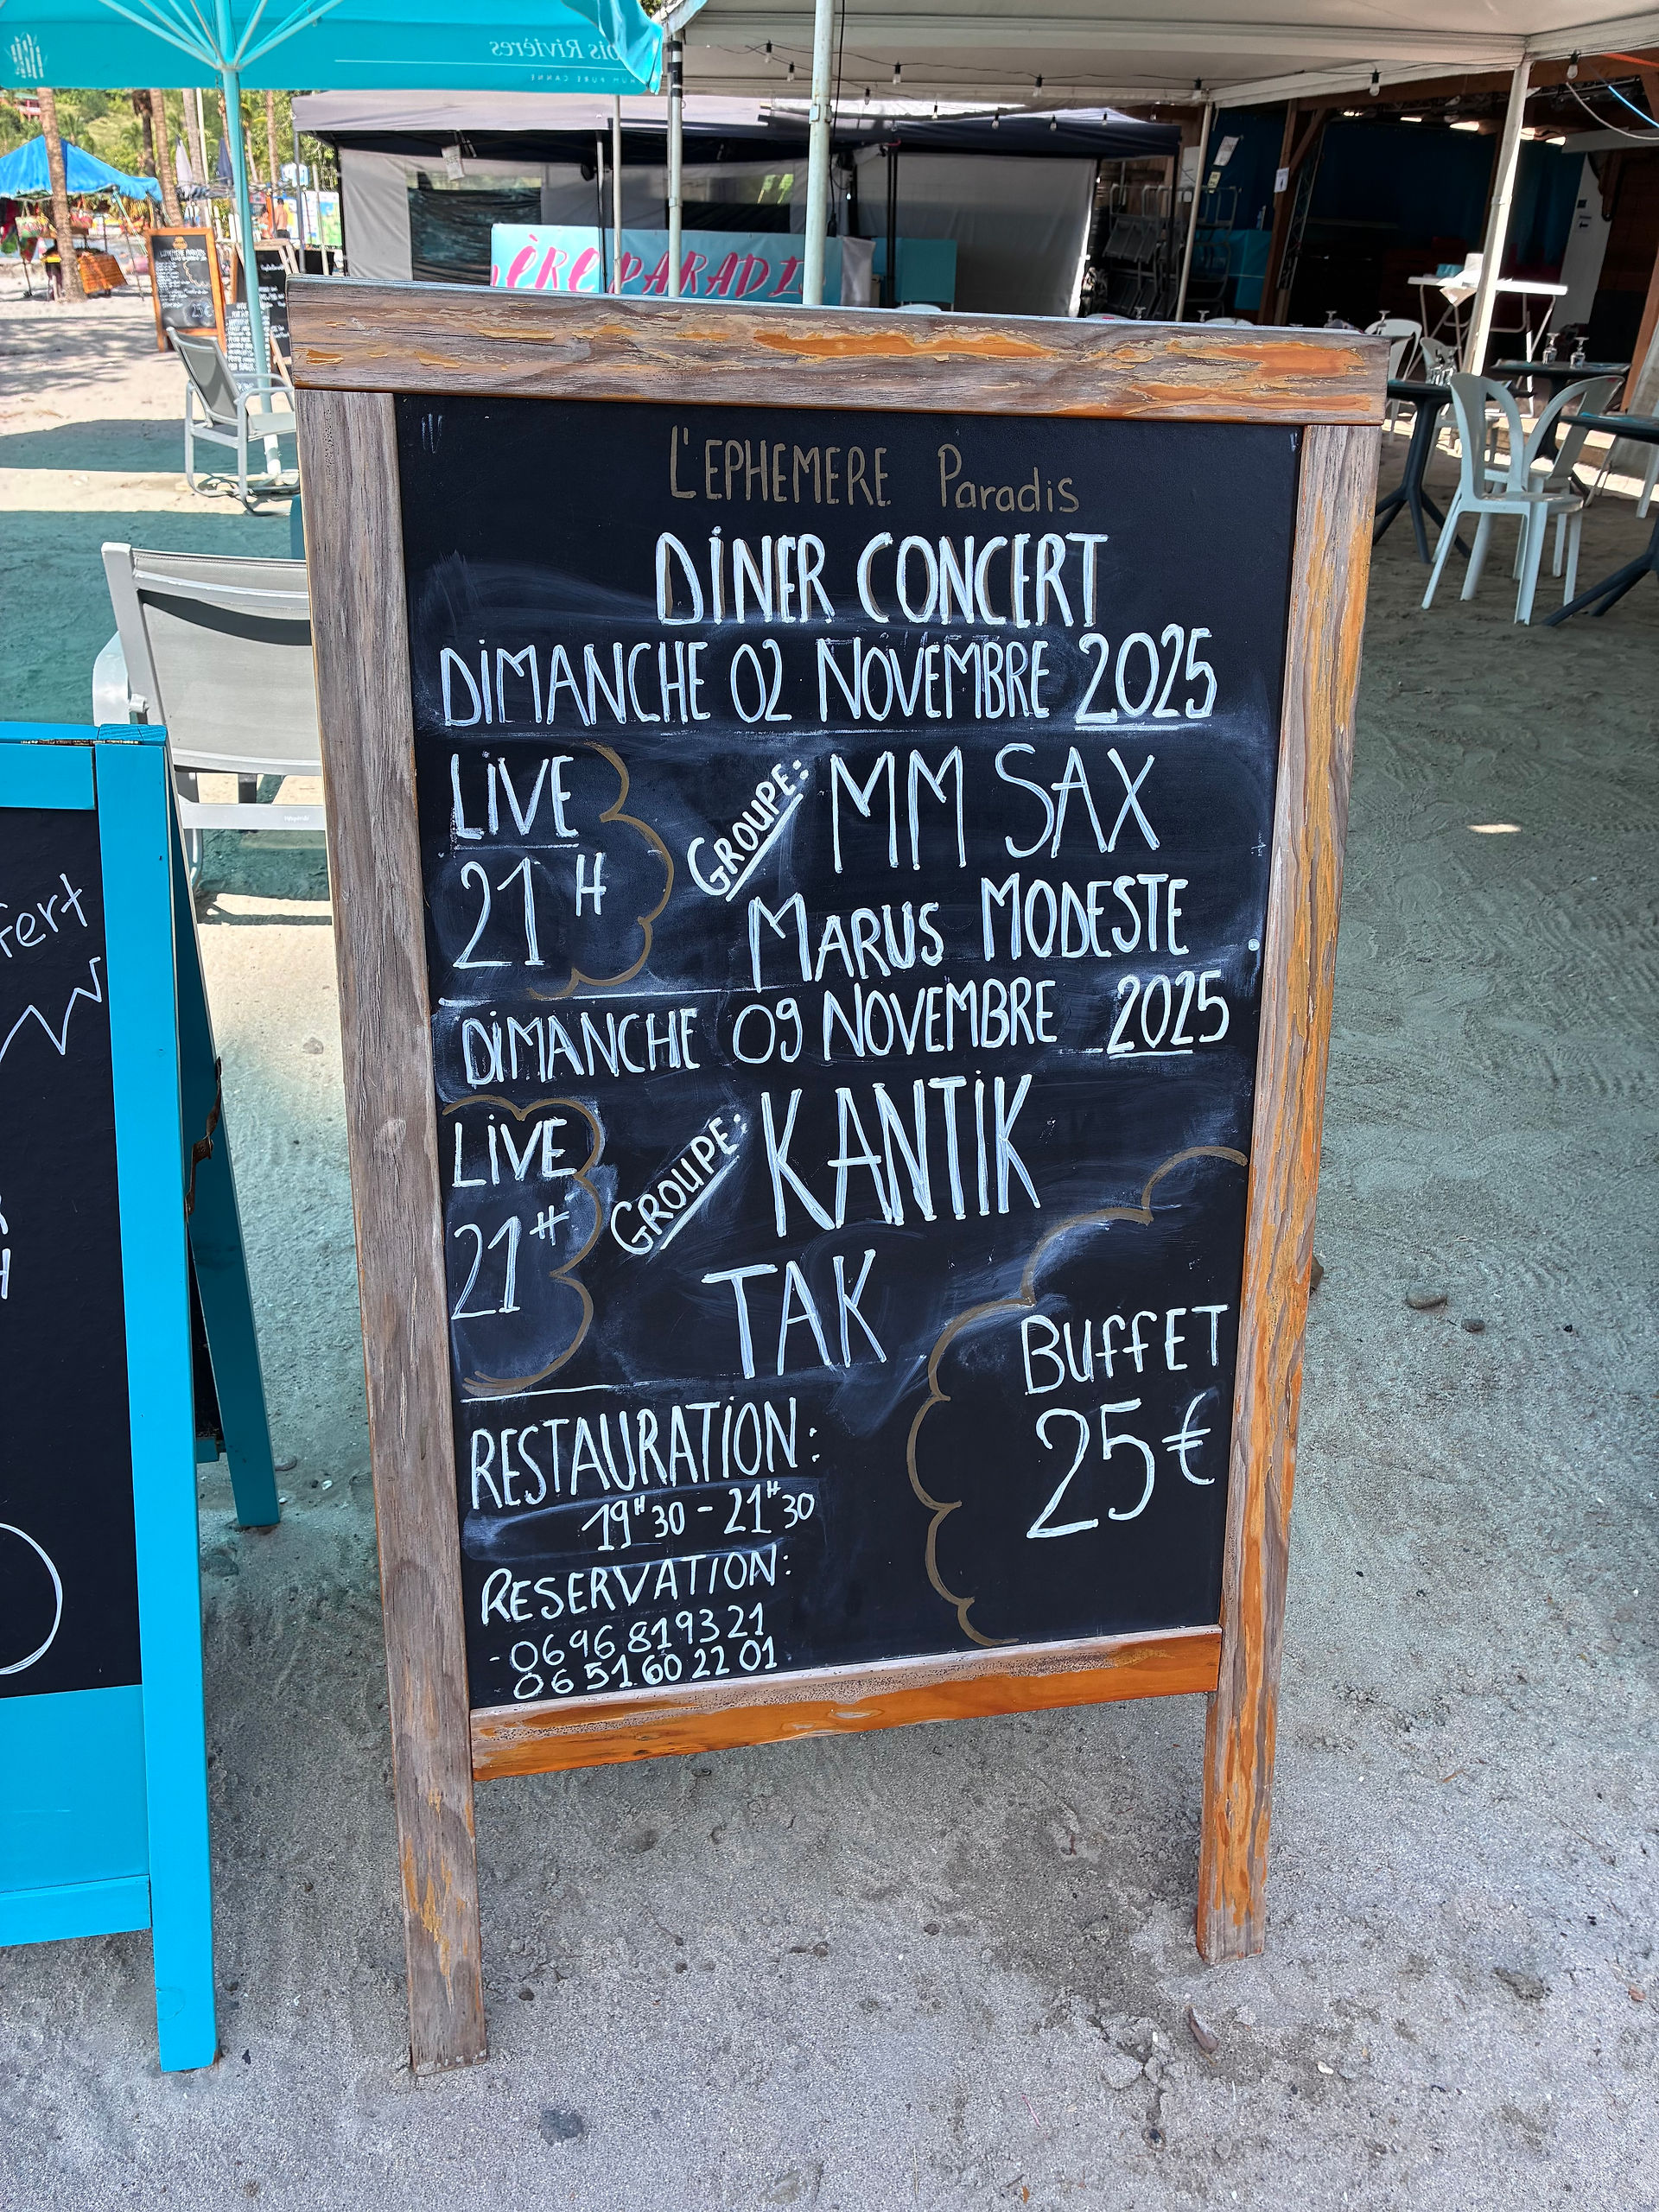 ois Rivières
RHUM PURE CANNE
ÈRE PARADI
L'EPHEMERE Paradis
DINER CONCERT
DIMANCHE 02 NOVEMBRE 2025
LIVE
21H
GROUPE: MM SAX
MARUS MODESTE
DIMANCHE 09 NOVEMBRE 2025
LIVE
21H
GROUPE: KANTIK
TAK
BUFFET
25€
RESTAURATION:
19H30 - 21H30
RESERVATION:
- 0696819321
0651602201
fert